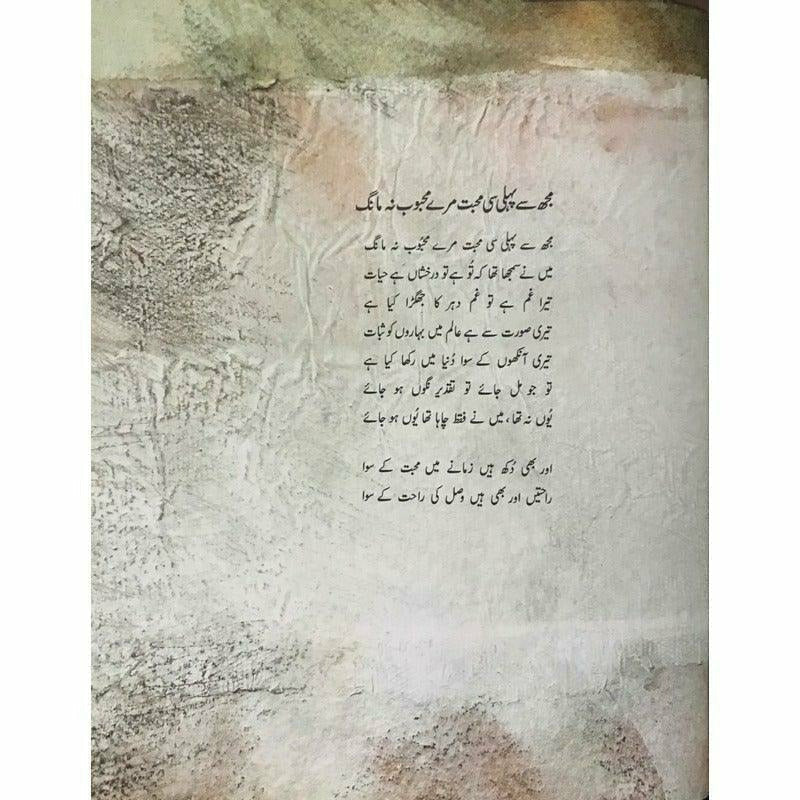 مجھ سے پہلی سی محبت مرے محبوب نہ مانگ
مجھ سے پہلی سی محبت مرے محبُوب نہ مانگ
میں نے سمجھا تھا کہ تُو ہے تو درخشاں ہے حیات
تیرا غم ہے تو غمِ دہر کا جھگڑا کیا ہے
تیری صورت سے ہے عالم میں بہاروں کو ثبات
تیری آنکھوں کے سوا دُنیا میں رکھا کیا ہے
تو جو مل جائے تو تقدیر نگوں ہو جائے
یُوں نہ تھا، میں نے فقط چاہا تھا یُوں ہو جائے
اور بھی دُکھ ہیں زمانے میں محبت کے سوا
راحتیں اور بھی ہیں وصل کی راحت کے سوا